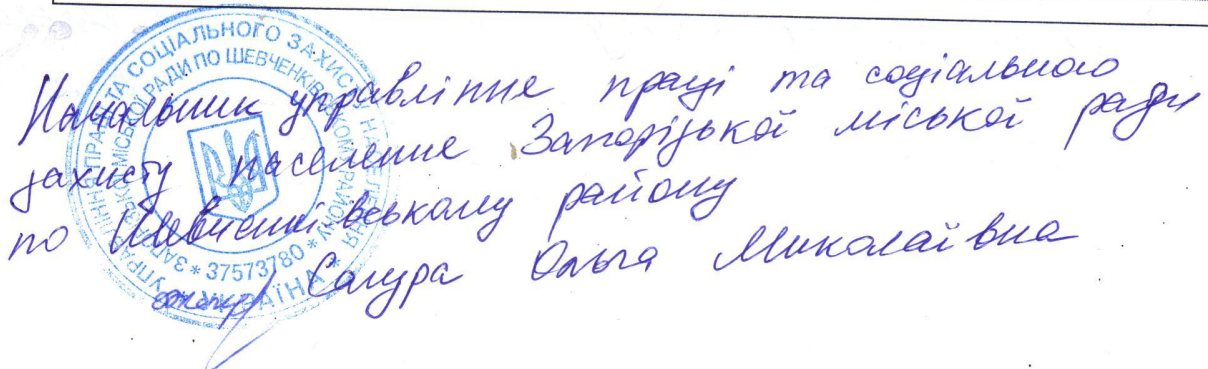 Начальник управління праці та соціального
захисту населення Запорізької міської ради
по Шевченківському району
Сагура Ольга Миколаївна
УПРАВЛІННЯ ПРАЦІ ТА СОЦІАЛЬНОГО ЗАХИСТУ НАСЕЛЕННЯ
ЗАПОРІЗЬКОЇ МІСЬКОЇ РАДИ ПО ШЕВЧЕНКІВСЬКОМУ РАЙОНУ
* 37573780 *
* УКРАЇНА *